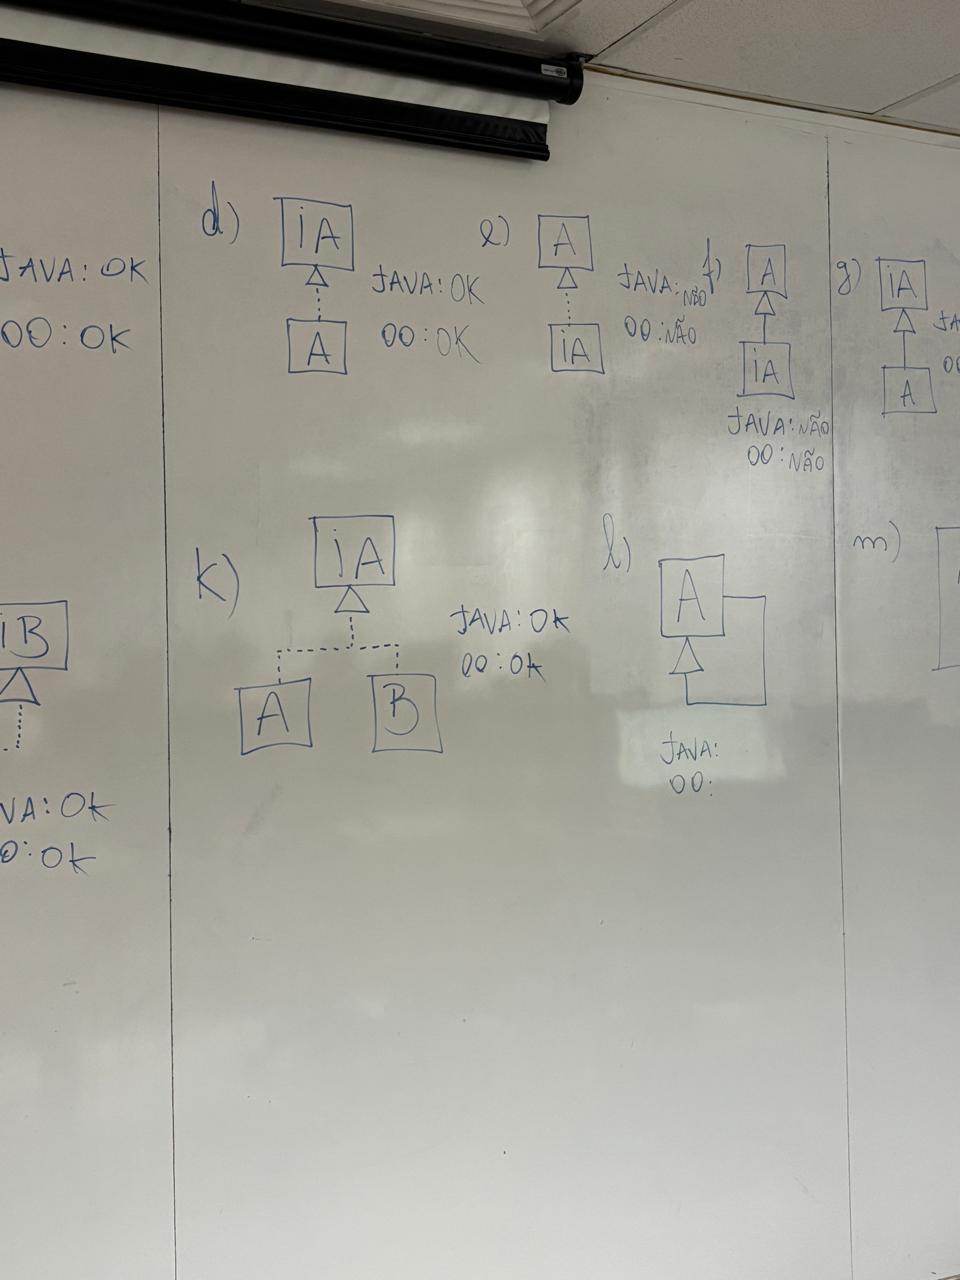 JAVA: OK
OO: OK
d)
iA
A
JAVA: OK
OO: OK
e)
A
iA
JAVA: NÃO
OO: NÃO
f)
A
iA
JAVA: NÃO
OO: NÃO
g)
iA
A
JA
OO
iB
VA: OK
O: OK
k)
iA
A
B
JAVA: OK
OO: OK
l)
A
JAVA:
OO:
m)